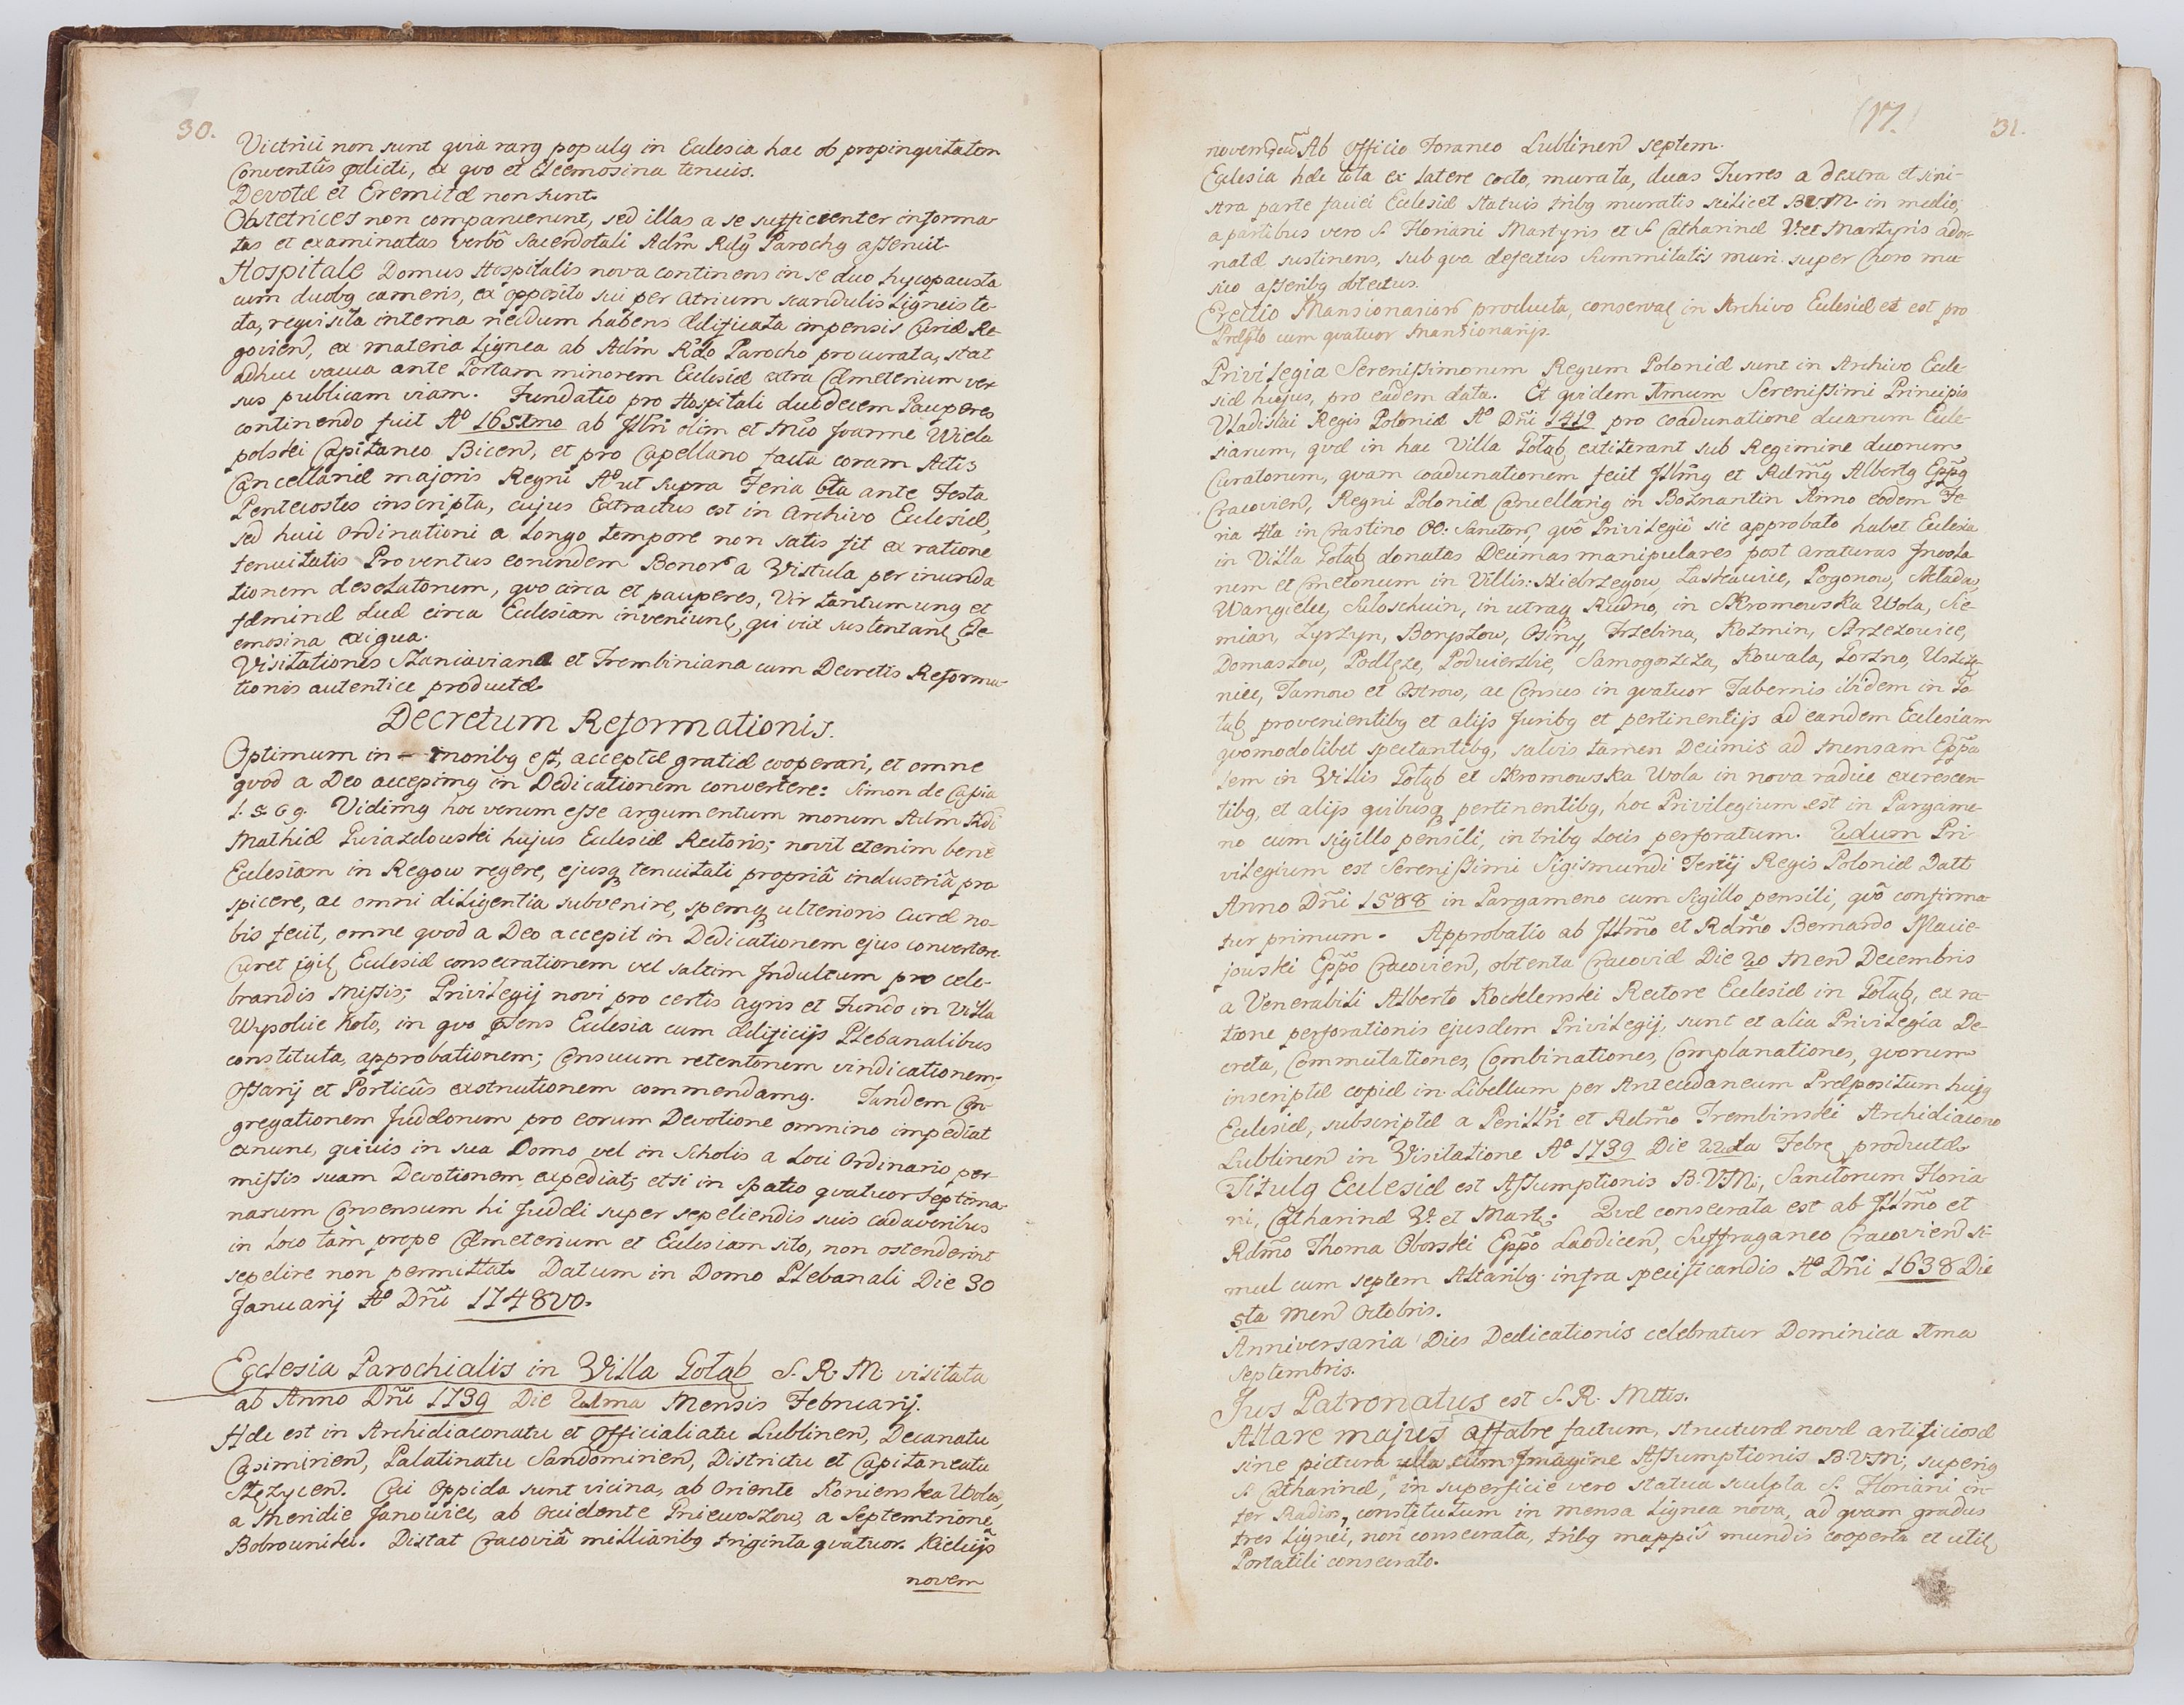 30.
Victrici non sunt quia rarg populg in Ecclesia hac ob propinquitatem
Conventûs pdicti, ex quo et Eleemosina tenuis.
Devotæ et Eremitæ non sunt.
Obstetrices non comparuerunt, sed illas a se sufficienter informa-
tas et examinatas verbô Sacerdotali Adm Rdg Parochg asseruit.
Hospitale Domus Hospitalis nova continens in se duo hypocausta
cum duobg cameris, ex opposito sui per atrium scandulis ligneis te-
cta, requisita interna necdum habens ædificata impensis Curiæ Re-
govien, ex materia Lignea ab Adm Rdo Parocho procurata, stat
adhuc vacua ante Portam minorem Ecclesiæ extra Cæmeterium ver-
sus publicam viam. Fundatio pro Hospitali duodecem Pauperes
continendo fuit Aº 1651mo ab Illri olim et Mco Joanne Wielo
polski Capitaneo Bicen, et pro Capellano facta coram Actis
Cancellariæ majoris Regni Aº ut supra Feria 6ta ante Festa
Pentecostes inscripta, cujus Extractus est in Archivo Ecclesiæ,
sed huic ordinationi a longo tempore non satis fit ex ratione
tenuitatis Proventus eorundem Bonor a Vistula per inunda
tionem desolatorum, quo circa et pauperes, Vir tantum ung et
fæminæ duæ circa Ecclesiam inveniunt, qui vix sustentant Ele-
emosina exigua.
Visitationes Szaniaviana et Trembiniana cum Decretis Reforma-
tionis autentice productæ.
Decretum Reformationis.
Optimum in moribg est, acceptæ gratiæ cooperari, et omne
quod a Deo accepimg in Dedicationem convertere: Simon de Cassia
l. 5. c. 9. Vidimg hoc verum esse argumentum morum Adm Rdi
Mathiæ Gwiazdowski hujus Ecclesiæ Rectoris; novit etenim bene
Ecclesiam in Regow regere, ejusq tenuitati propriâ industriâ pro
spicere, ac omni diligentia subvenire, spemq ulterioris Curæ no-
bis fecit, omne quod a Deo accepit in Dedicationem ejus convertere.
Curet igit Ecclesiæ consecrationem vel saltim Indultum pro cele-
brandis Missis; Privilegij novi pro certis agris et Fundo in Villa
Wysokie Koło, in quo pñens Ecclesia cum ædificijs Plebanalibus
constituta, approbationem; Censuum retentorum vindicationem;
Ossarij et Porticûs exstructionem commendamg. Tandem Con-
gregationem Judæorum pro eorum Devotione omnino impediat
exnunc, quivis in sua Domo vel in Scholis a Loci Ordinario per-
missis suam Devotionem expediat; etsi in spatio quatuor septima-
narum Consensum hi Judæi super sepeliendis suis cadaveribus
in Loco tàm prope Cæmeterium et Ecclesiam sito, non ostenderint
sepelire non permittat. Datum in Domo Plebanali Die 30
Januarij Aº Dñi 1748vo.
Ecclesia Parochialis in Villa Gołąb S. R. M. visitata
ab Anno Dñi 1739 Die 21ma Mensis Februarij.
Hæc est in Archidiaconatu et Officialiatu Lublinen, Decanatu
Casimirien, Palatinatu Sandomirien, Districtu et Capitaneatu
Stęzycen. Cui Oppida sunt vicina, ab Oriente Konienska Wola,
a Meridie Janowiec, ab Occidente Gniewoszow, a Septemtrione
Bobrowniki. Distat Cracoviâ milliaribg triginta quatuor. Kielcijs
novem
(17.)
31.
novemdecì Ab Officio Foraneo Lublinen septem.
Ecclesia hæc tota ex latere cocto, murata, duas Turres a dextra et sini-
stra parte faciei Ecclesiæ statuis tribg muratis scilicet B.V.M. in medio,
a partibus vero S. Floriani Martyris et S. Catharinæ V. et Martyris ador-
natæ sustinens, sub qua defectus Summitatis muri super Choro mu-
sico asseribg obtectus.
Erectio Mansionarior producta, conservat in Archivo Ecclesiæ et est pro
Præpto cum quatuor Mansionarijs.
Privilegia Serenissimorum Regum Poloniæ sunt in Archivo Eccle-
siæ hujus, pro eadem data. Et quidem Imum Serenissimi Principis
Vladislai Regis Poloniæ Aº Dñi 1419 pro coadunatione duarum Eccle-
siarum, quæ in hac Villa Gołąb extiterant sub Regimine duorum
Curatorum, quam coadunationem fecit Illmg et Rdmg Albertg Eppg
Cracovien, Regni Poloniæ Cancellarig in Boznantin Anno eodem Fe-
ria 4ta in Crastino OO: Sanctor, quô Privilegiô sic approbato habet Ecclesia
in Villa Gołąb donatas Decimas manipulares post araturas Incola
rum et Cmetonum in Villis: Sziebrzegow, Laskawice, Pogonow, Skladow,
Wangielce, Suloschuin, in utraq Rudno, in Skromowska Wola, Sie-
mian, Zyrzyn, Borysłow, Osiny, Trzebina, Kozmin, Strzezowice,
Domaszow, Podlęze, Podwierzbie, Samogoszcza, Kowala, Gorzno, Uscią-
niec, Tarnow et Ostrow, ac Census in quatuor Tabernis ibidem in Go-
łąb provenientibg et alijs Juribg et pertinentijs ad eandem Ecclesiam
quomodolibet spectantibg, salvis tamen Decimis ad mensam Eppa
lem in Villis Gołąb et Skromowska Wola in nova radice excrescen-
tibg, et alijs quibusq pertinentibg, hoc Privilegium est in Pargame-
no cum sigillo pensili, in tribg Locis perforatum. 2dum Pri-
vilegium est Serenissimi Sigismundi Tertij Regis Poloniæ Datt
Anno Dñi 1588 in Pargameno cum Sigillo pensili, quô confirma-
tur primum. Approbatio ab Illmo et Rdmo Bernardo Macie-
jowski Eppo Cracovien, obtenta Cracoviæ Die 20 Men Decembris
a Venerabili Alberto Kochlenski Rectore Ecclesiæ in Gołąb, ex ra-
tione perforationis ejusdem Privilegij, sunt et alia Privilegia De-
creta, Commutationes, Combinationes, Complanationes, quorum
inscriptæ copiæ in Libellum per Antecedaneum Præpositum hujg
Ecclesiæ, subscriptæ a Perillri et Rdmo Trembinski Archidiacono
Lublinen in Visitatione Aº 1739 Die 22da Febr productæ.
Titulg Ecclesiæ est Assumptionis B.V.M., Sanctorum Floria-
ni, Catharinæ V. et Mart. Quæ consecrata est ab Illmo et
Rdmo Thoma Oborski Eppo Laodicen, Suffraganeo Cracovien si-
mul cum septem Altaribg infra specificandis Aº Dñi 1638 Die
5ta Men Octobris.
Anniversaria Dies Dedicationis celebratur Dominica Ima
Septembris.
Jus Patronatus est S. R. Mttis.
Altare majus affabre factum, structuræ novæ artificiosæ
sine pictura ulla cum Imagine Assumptionis B.V.M., superig
S. Catharinæ, in superficie vero statua sculpta S. Floriani in-
ter Radios, constitutum in mensa Lignea nova, ad quam gradus
tres lignei, non consecrata, tribg mappis mundis cooperta et utit
Portatili consecrato.